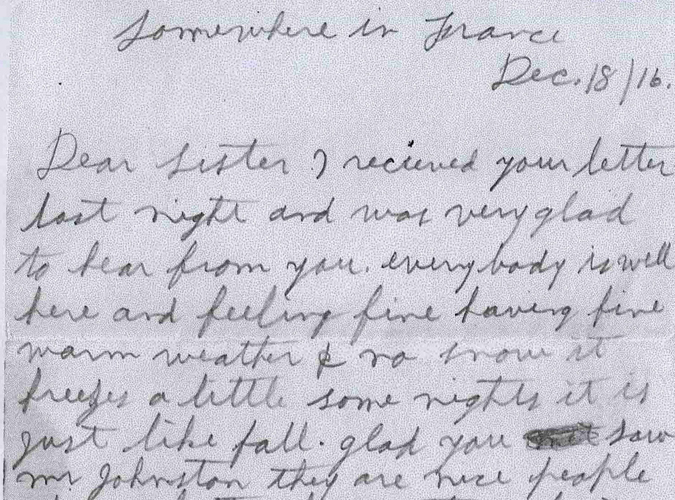 Somewhere in France
Dec. 18/16.
Dear Sister I recieved your letter
last night and was very glad
to hear from you. everybody is well
here and feeling fine having fine
warm weather & no snow it
freezes a little some nights it is
just like fall. glad you saw
mr Johnston they are nice people